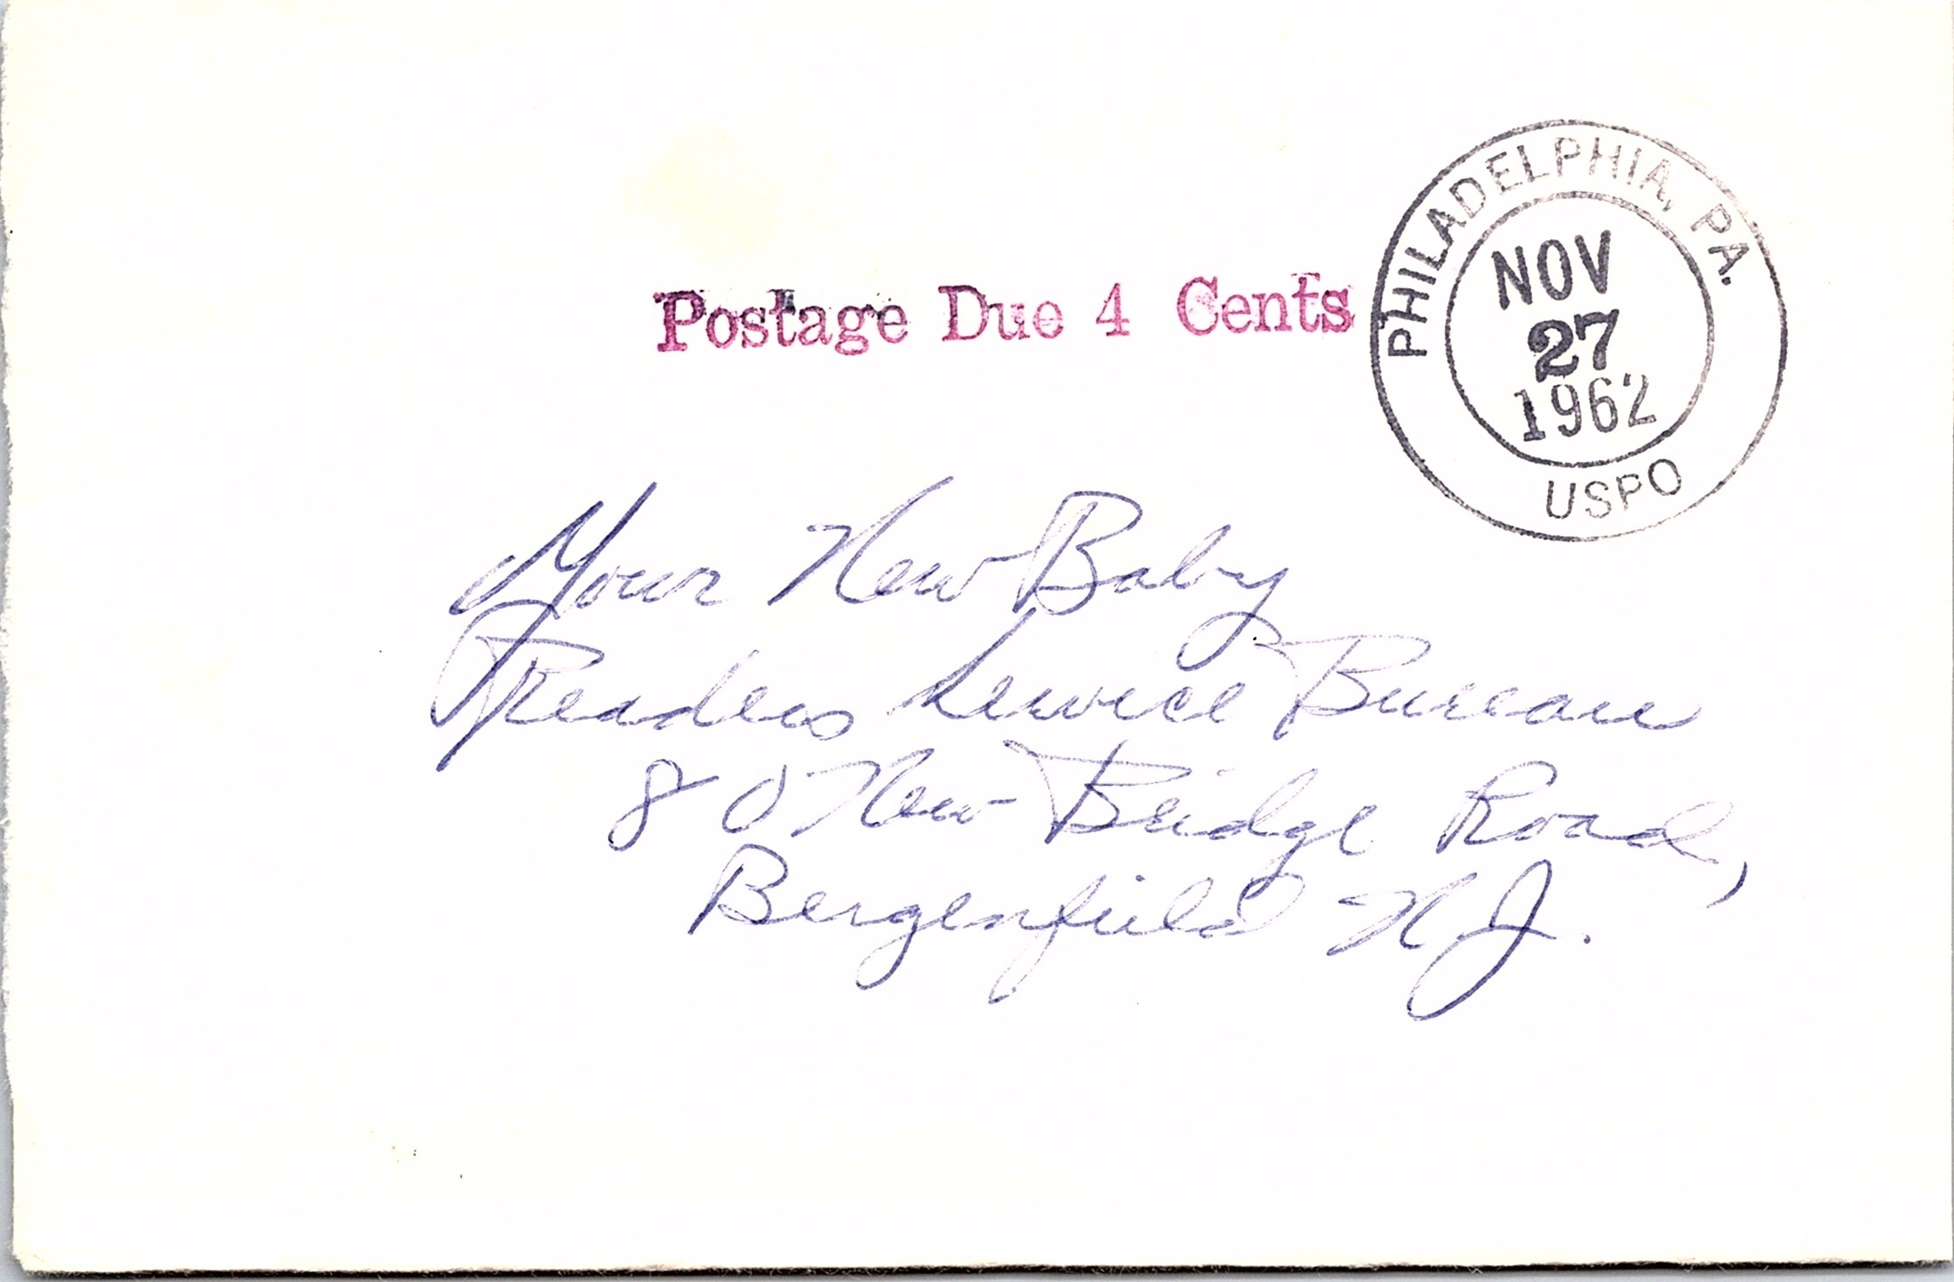 PHILADELPHIA, PA.
NOV
27
1962
USPO
Postage Due 4 Cents
Your New Baby
Readers Service Bureau
80 New Bridge Road,
Bergenfield N.J.